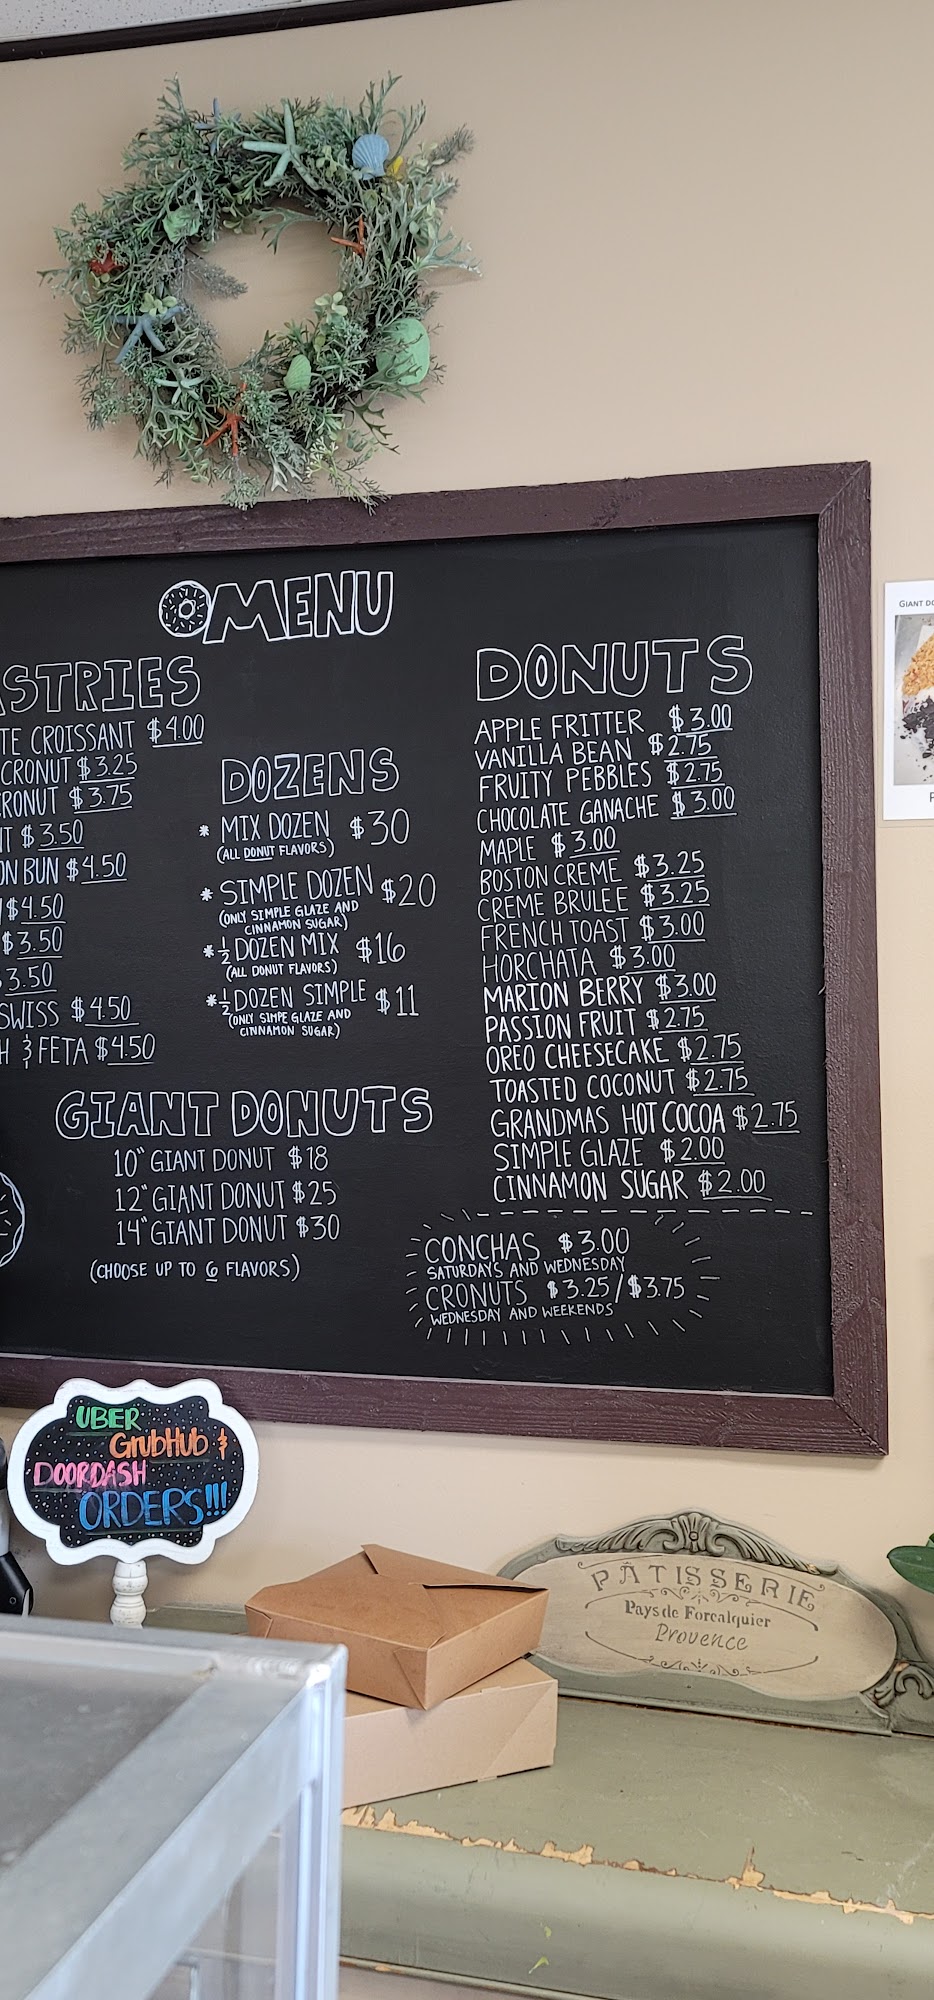 MENU
STRIES
TE CROISSANT $4.00
CRONUT $3.25
RONUT $3.75
$3.50
BUN $4.50
$4.50
$3.50
3.50
SWISS $4.50
& FETA $4.50
DOZENS
* MIX DOZEN $30
(ALL DONUT FLAVORS)
* SIMPLE DOZEN $20
(ONLY SIMPLE GLAZE AND
CINNAMON SUGAR)
* ½ DOZEN MIX $16
(ALL DONUT FLAVORS)
* ½ DOZEN SIMPLE $11
(ONLY SIMPE GLAZE AND
CINNAMON SUGAR)
GIANT DONUTS
10" GIANT DONUT $18
12" GIANT DONUT $25
14" GIANT DONUT $30
(CHOOSE UP TO 6 FLAVORS)
DONUTS
APPLE FRITTER $3.00
VANILLA BEAN $2.75
FRUITY PEBBLES $2.75
CHOCOLATE GANACHE $3.00
MAPLE $3.00
BOSTON CREME $3.25
CREME BRULEE $3.25
FRENCH TOAST $3.00
HORCHATA $3.00
MARION BERRY $3.00
PASSION FRUIT $2.75
OREO CHEESECAKE $2.75
TOASTED COCONUT $2.75
GRANDMAS HOT COCOA $2.75
SIMPLE GLAZE $2.00
CINNAMON SUGAR $2.00
CONCHAS $3.00
SATURDAYS AND WEDNESDAY
CRONUTS $3.25/$3.75
WEDNESDAY AND WEEKENDS
GIANT
UBER
GrubHub &
DOORDASH
ORDERS!!!
PÂTISSERIE
Pays de Forcalquier
Provence